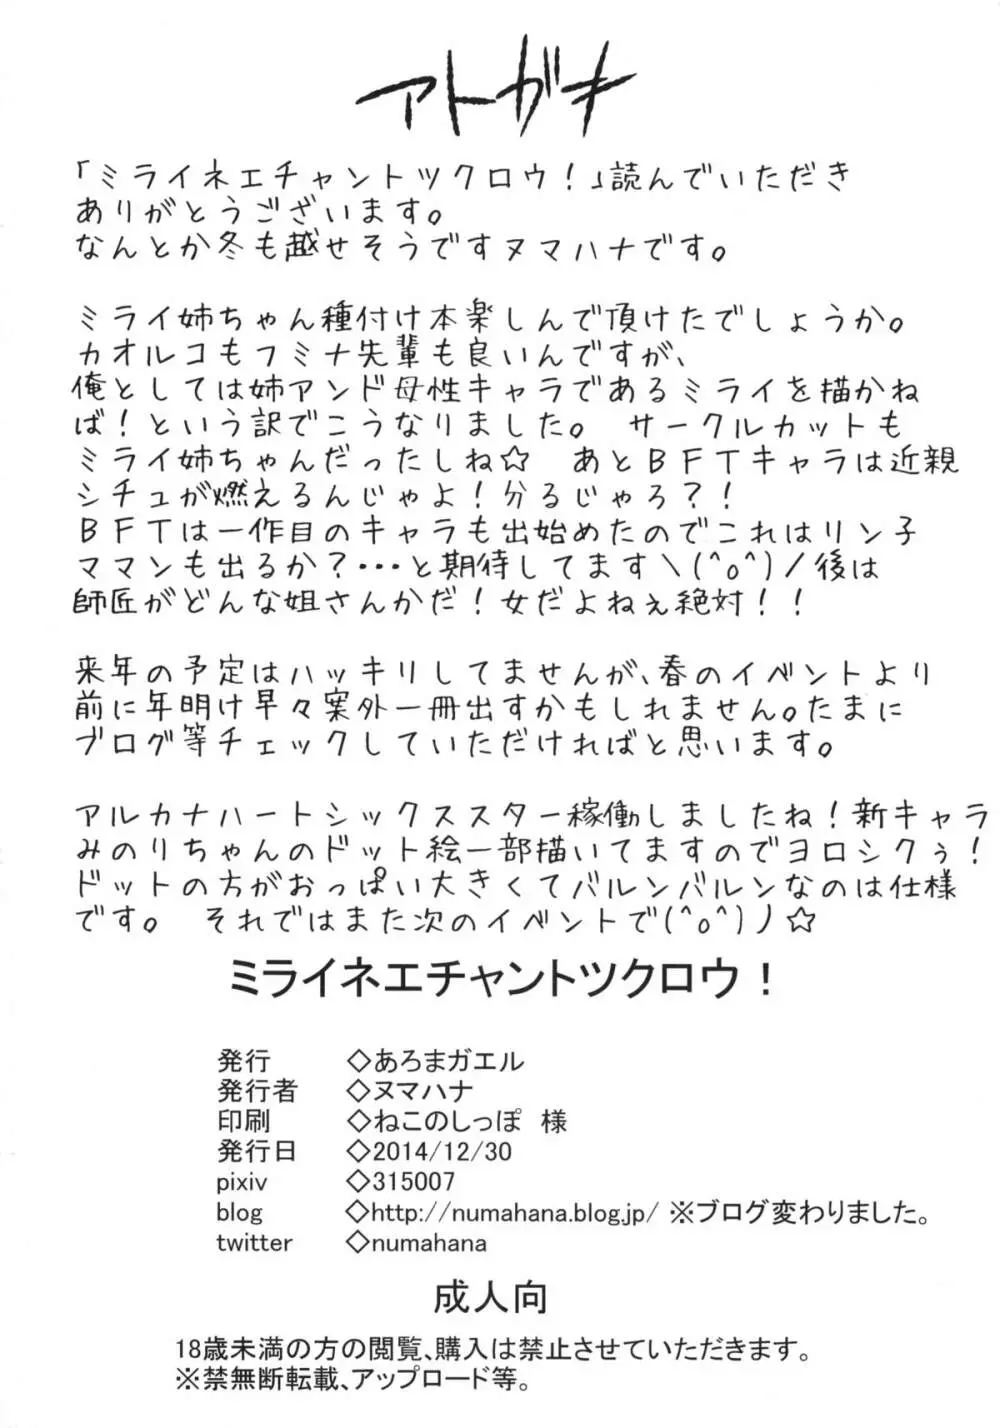 アトガキ
「ミライネエチャントツクロウ！」読んでいただき
ありがとうございます。
なんとか冬も越せそうですヌマハナです。
ミライ姉ちゃん種付け本楽しんで頂けたでしょうか。
カオルコもフミナ先輩も良いんですが、
俺としては姉アンド母性キャラであるミライを描かね
ば！という訳でこうなりました。　サークルカットも
ミライ姉ちゃんだったしね☆　あとＢＦＴキャラは近親
シチュが燃えるんじゃよ！分るじゃろ？！
ＢＦＴは一作目のキャラも出始めたのでこれはリン子
ママンも出るか？・・・と期待してます＼(^o^)／後は
師匠がどんな姐さんかだ！女だよねぇ絶対！！
来年の予定はハッキリしてませんが、春のイベントより
前に年明け早々案外一冊出すかもしれません。たまに
ブログ等チェックしていただければと思います。
アルカナハートシックススター稼働しましたね！新キャラ
みのりちゃんのドット絵一部描いてますのでヨロシクぅ！
ドットの方がおっぱい大きくてバルンバルンなのは仕様
です。　それではまた次のイベントで(^o^)ノ☆
ミライネエチャントツクロウ！
発行　◇あろまガエル
発行者　◇ヌマハナ
印刷　◇ねこのしっぽ　様
発行日　◇2014/12/30
pixiv　◇315007
blog　◇http://numahana.blog.jp/ ※ブログ変わりました。
twitter　◇numahana
成人向
18歳未満の方の閲覧、購入は禁止させていただきます。
※禁無断転載、アップロード等。